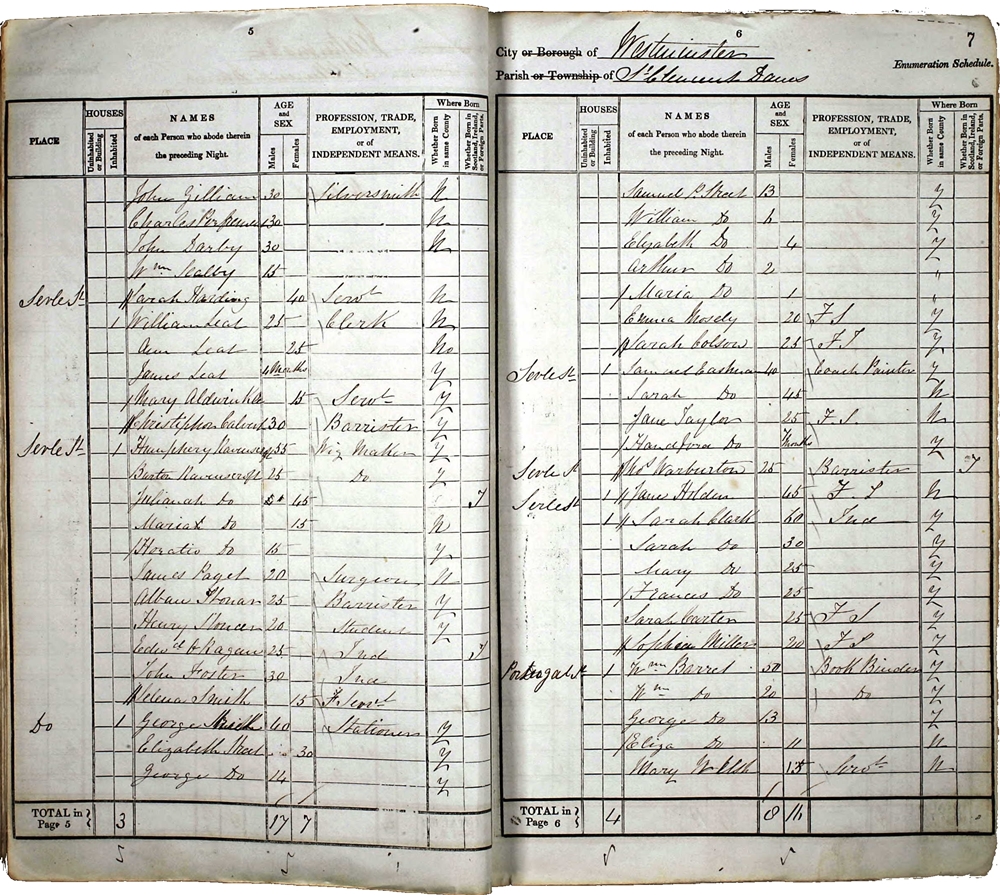 5
PLACE HOUSES Uninhabited or Building Inhabited NAMES of each Person who abode therein the preceding Night. AGE and SEX Males Females PROFESSION, TRADE, EMPLOYMENT, or of INDEPENDENT MEANS. Where Born Whether Born in same County Whether Born in Scotland, Ireland, or Foreign Parts.
John Gilliam 30 Silversmith N
Charles 30 N
John Darby 30 N
Wm Scalby 15
Serle St Sarah Harding 40 Servt N
1 William Leat 25 Clerk N
Ann Leat 25 No
James Leat 4 Months Y
Mary 15 Servt Y
Christopher Calvert 30 Barrister Y
Serle St 1 Humphery 55 Wig Maker Y
Burton Ravenscroft 25 Do Y
Julianah Do 45 I
Do 15 N
Horatio Do 15 Y
James Paget 20 Surgeon N
Alban 25 Barrister Y
Henry 20 Student Y
25 Ind I
John Foster 30 Ind
Helena Smith 15 F. Servt
Do 1 George 40 Stationer Y
Elizabeth Street 30 Y
George Do 14 Y
TOTAL in Page 5 3 17 7
6
7
City or Borough of Westminster
Parish or Township of St Clement Danes
Enumeration Schedule.
PLACE HOUSES Uninhabited or Building Inhabited NAMES of each Person who abode therein the preceding Night. AGE and SEX Males Females PROFESSION, TRADE, EMPLOYMENT, or of INDEPENDENT MEANS. Where Born Whether Born in same County Whether Born in Scotland, Ireland, or Foreign Parts.
Samuel P. Street 13 Y
William Do 6 Y
Elizabeth Do 4 Y
Arthur Do 2 "
Maria Do 1 "
Emma Mosely 20 F S Y
Sarah Colson 25 F S Y
Serle St 1 Samuel Cashman 40 Coach Painter Y
Sarah Do 45 N
Jane Taylor 25 F. S N
Do 7 Months Y
Serle St Thos Warburton 25 Barrister I
Serle St 1 Jane Holden 45 F S N
1 Sarah Clark 60 Ind Y
Sarah Do 30 Y
Mary Do 25 Y
Frances Do 25 Y
Sarah Carter 25 F S Y
Sophia Miller 20 F S Y
Portugal St 1 Wm Barret 50 Book Binder Y
Wm Do 20 Do Y
George Do 13 Y
Eliza Do 11 N
Mary Welsh 15 Servt N
TOTAL in Page 6 4 8 16